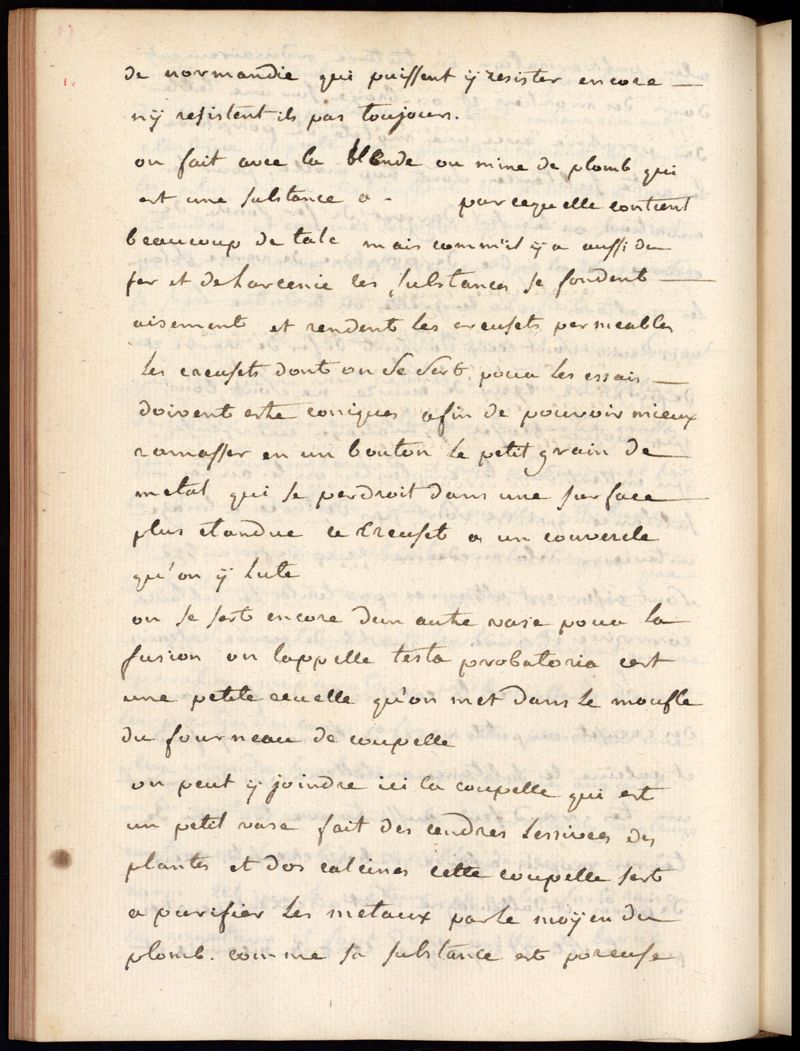 de normandie qui puissent ÿ resister encore —
n'ÿ resistent ils pas toujours.
on fait avec la blende ou mine de plomb qui
est une substance a - parcequelle contient
beaucoup de talc mais comm'il ÿ a aussi du
fer et de larcenic les substances se fondent —
aisement et rendent les creusets permeables
les creusets dont on se sert pour les essais —
doivent estre coniques afin de pouvoir mieux
ramasser en un bouton le petit grain de
metal qui se perdroit dans une surface
plus etandue ce creuset a un couvercle
qu'on ÿ lute
on se sert encore dun autre vase pour la
fusion on lappelle testa probatoria cest
une petite ecuelle qu'on met dans le moufle
du fourneau de coupelle
on peut ÿ joindre ici la coupelle qui est
un petit vase fait des cendres lessivees des
plantes et dos calcines cette coupelle sert
a purifier les metaux par le moÿen du
plomb. comme sa substance est poreuse